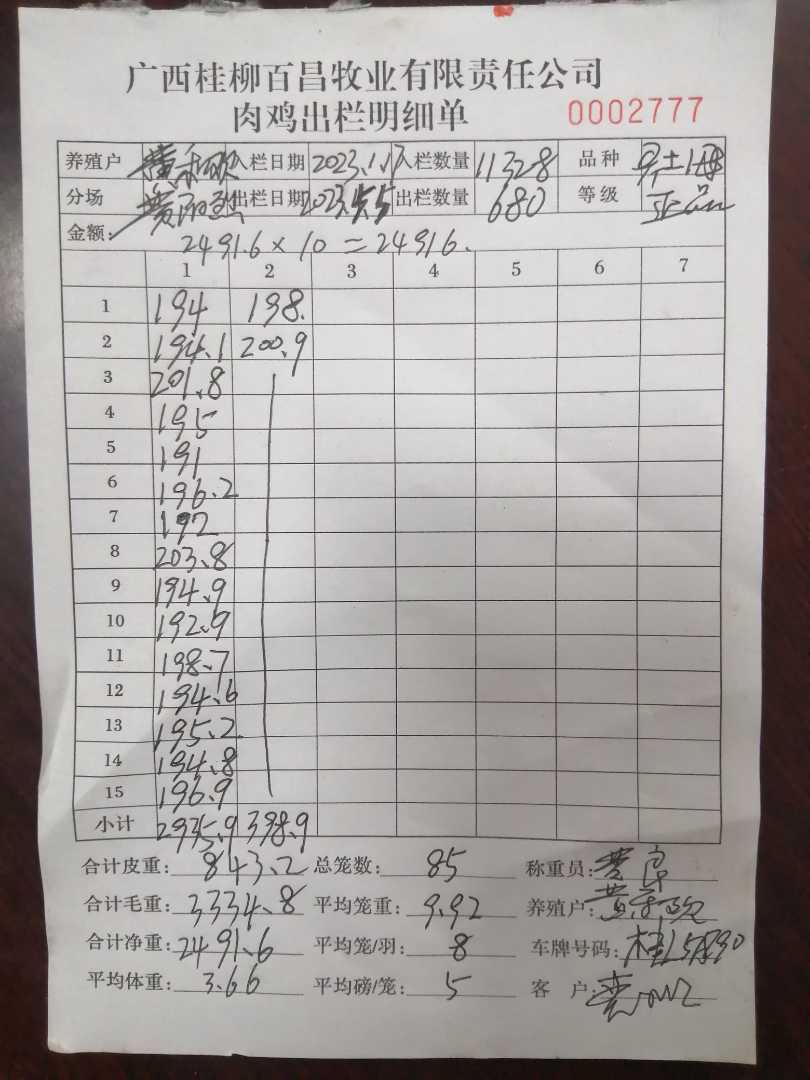 广西桂柳百昌牧业有限责任公司
肉鸡出栏明细单 0002777
养殖户 入栏日期 2023.1.17 入栏数量 11328 品种
分场 出栏日期 2023.5.5 出栏数量 680 等级 正品
金额: 2491.6×10=24916.
1 2 3 4 5 6 7
1 194 198.
2 194.1 200.9
3 201.8
4 195
5 191
6 196.2
7 192
8 203.8
9 194.9
10 192.9
11 198.7
12 194.6
13 195.2
14 194.8
15 196.9
小计 2935.9 398.9
合计皮重: 843.2 总笼数: 85 称重员:
合计毛重: 3334.8 平均笼重: 9.92 养殖户:
合计净重: 2491.6 平均笼/羽: 8 车牌号码:
平均体重: 3.66 平均磅/笼: 5 客 户: